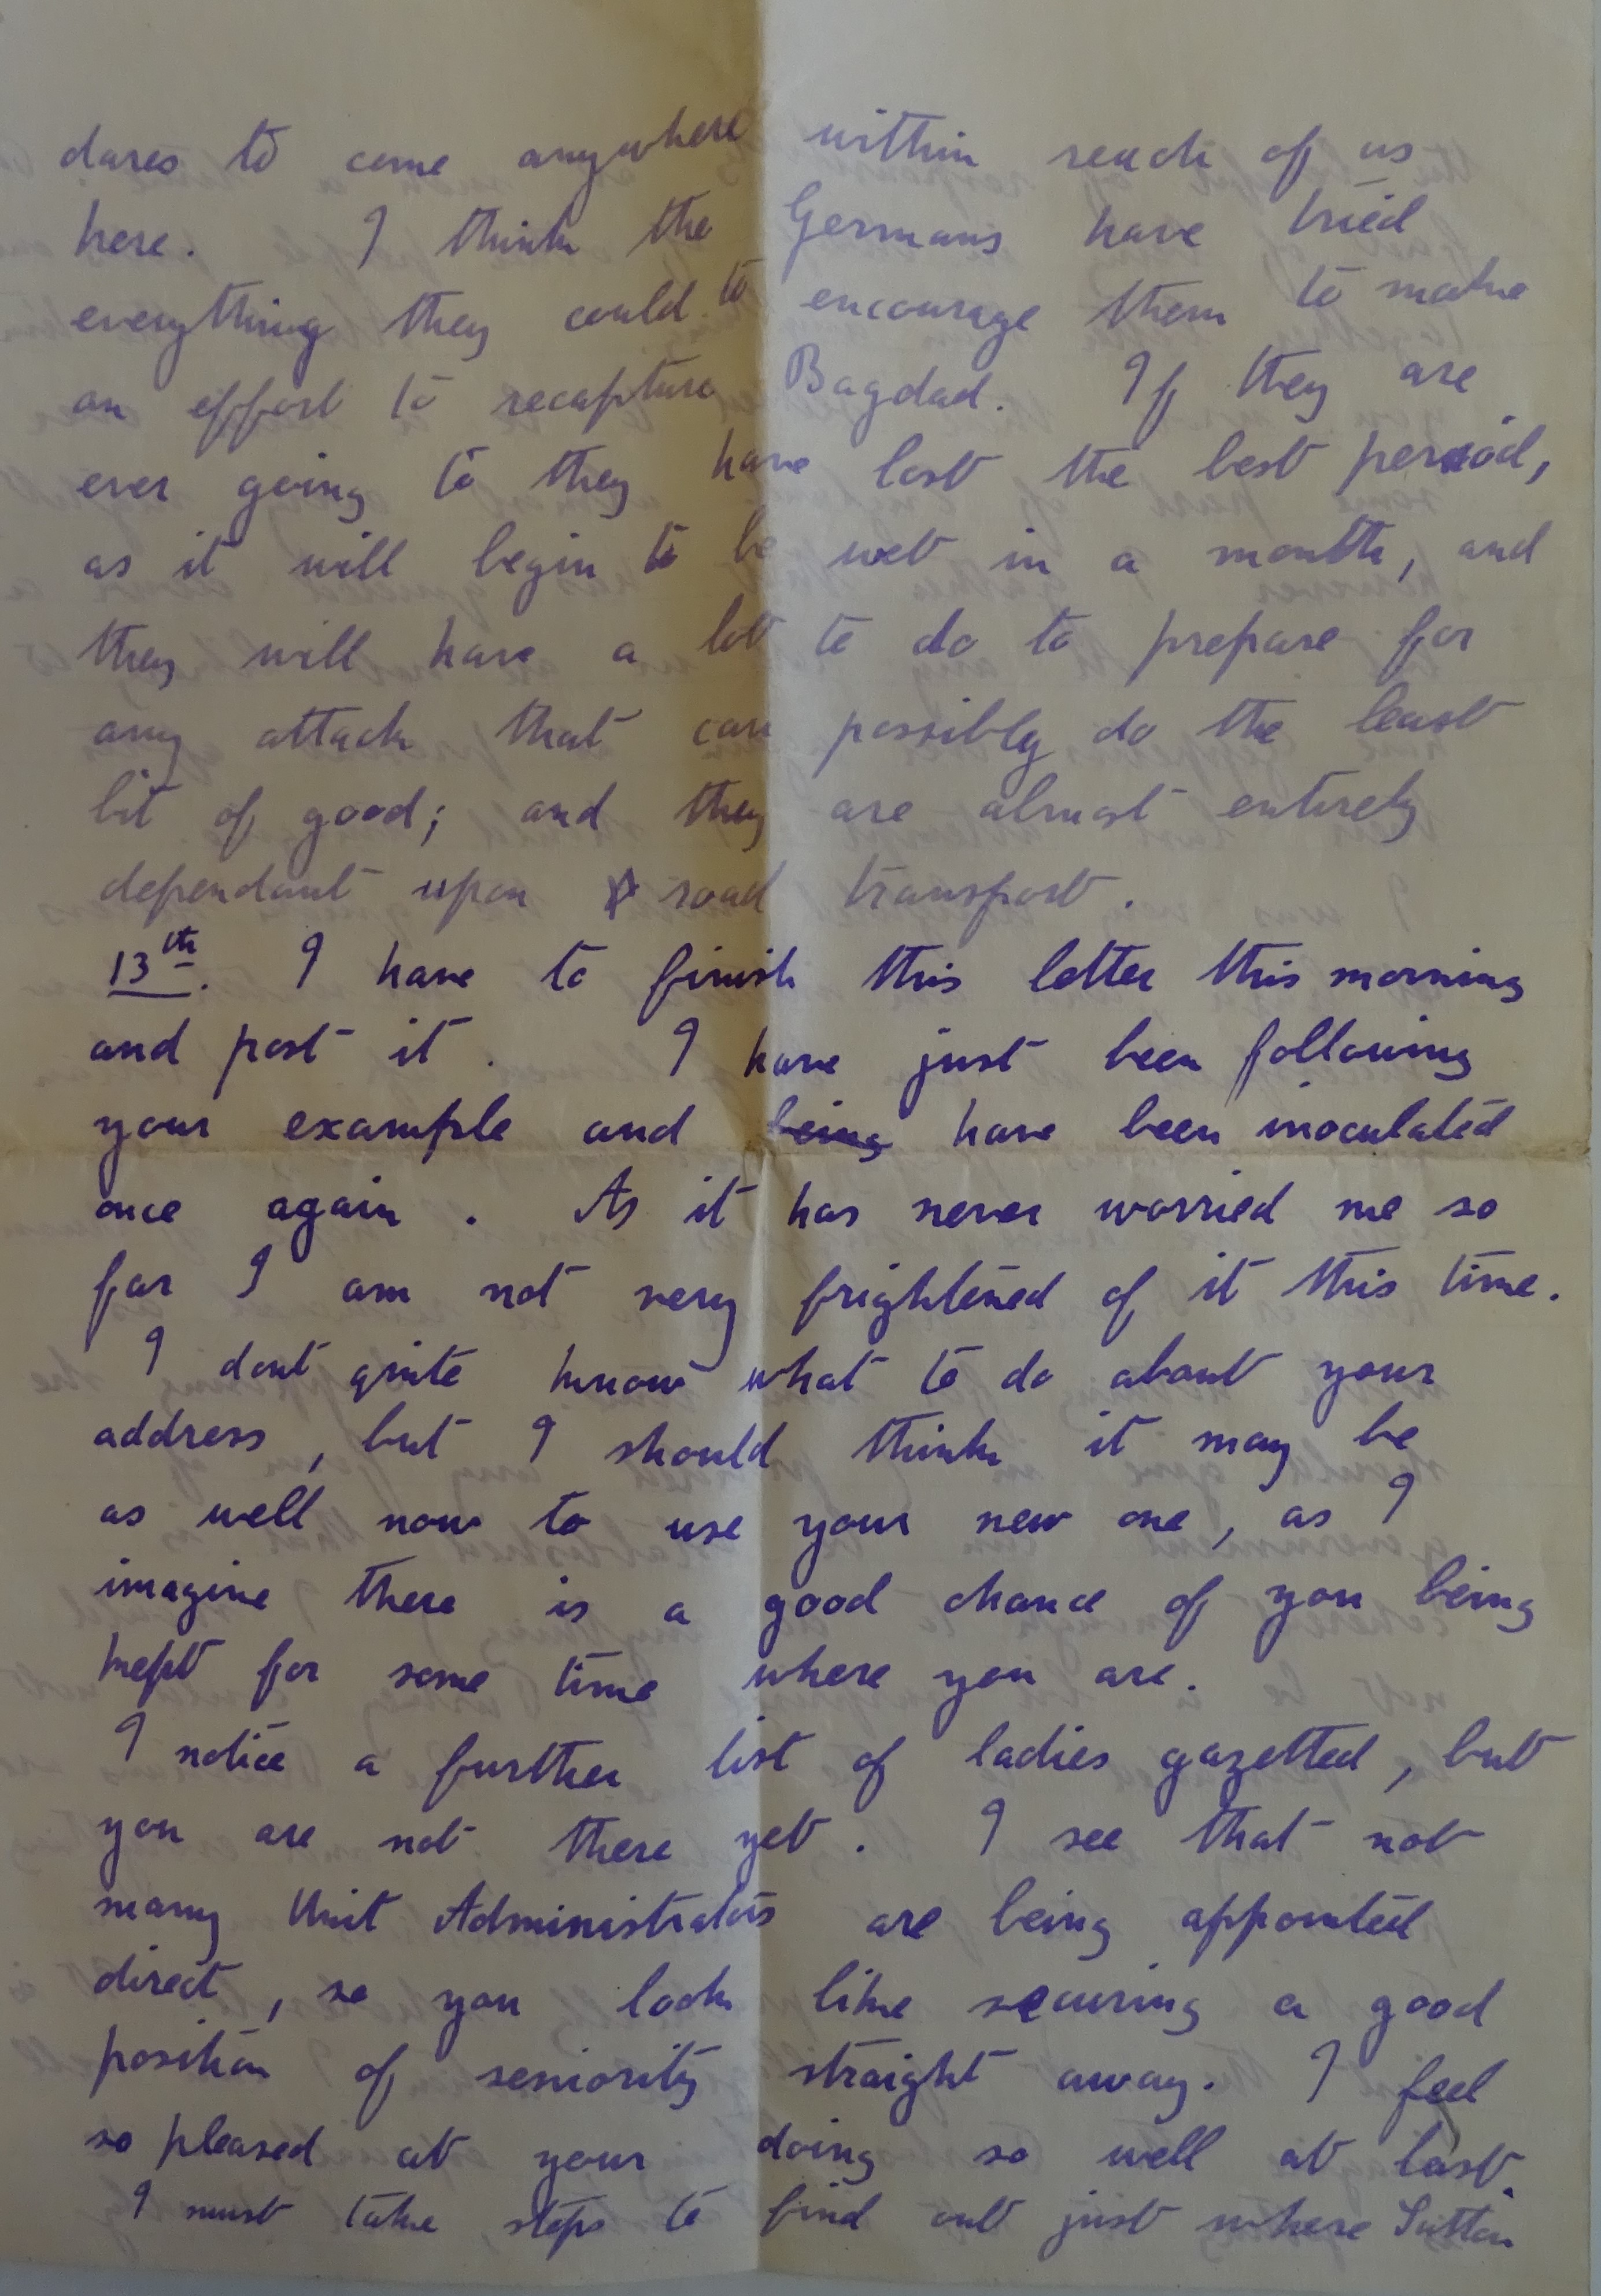 dares to come anywhere within reach of us
here. I think the Germans have tried
everything they could to encourage them to make
an effort to recapture Bagdad. If they are
ever going to they have lost the best period,
as it will begin to be wet in a month, and
they will have a lot to do to prepare for
any attack that can possibly do the least
bit of good; and they are almost entirely
dependant upon road transport.
13th. I have to finish this letter this morning
and post it. I have just been following
your example and being have been inoculated
once again. As it has never worried me so
far I am not very frightened of it this time.
I dont quite know what to do about your
address, but I should think it may be
as well now to use your new one, as I
imagine there is a good chance of you being
kept for some time where you are.
I notice a further list of ladies gazetted, but
you are not there yet. I see that not
many Unit Administrators are being appointed
direct, so you look like securing a good
position of seniority straight away. I feel
so pleased at your doing so well at last.
I must take steps to find out just where Sutton